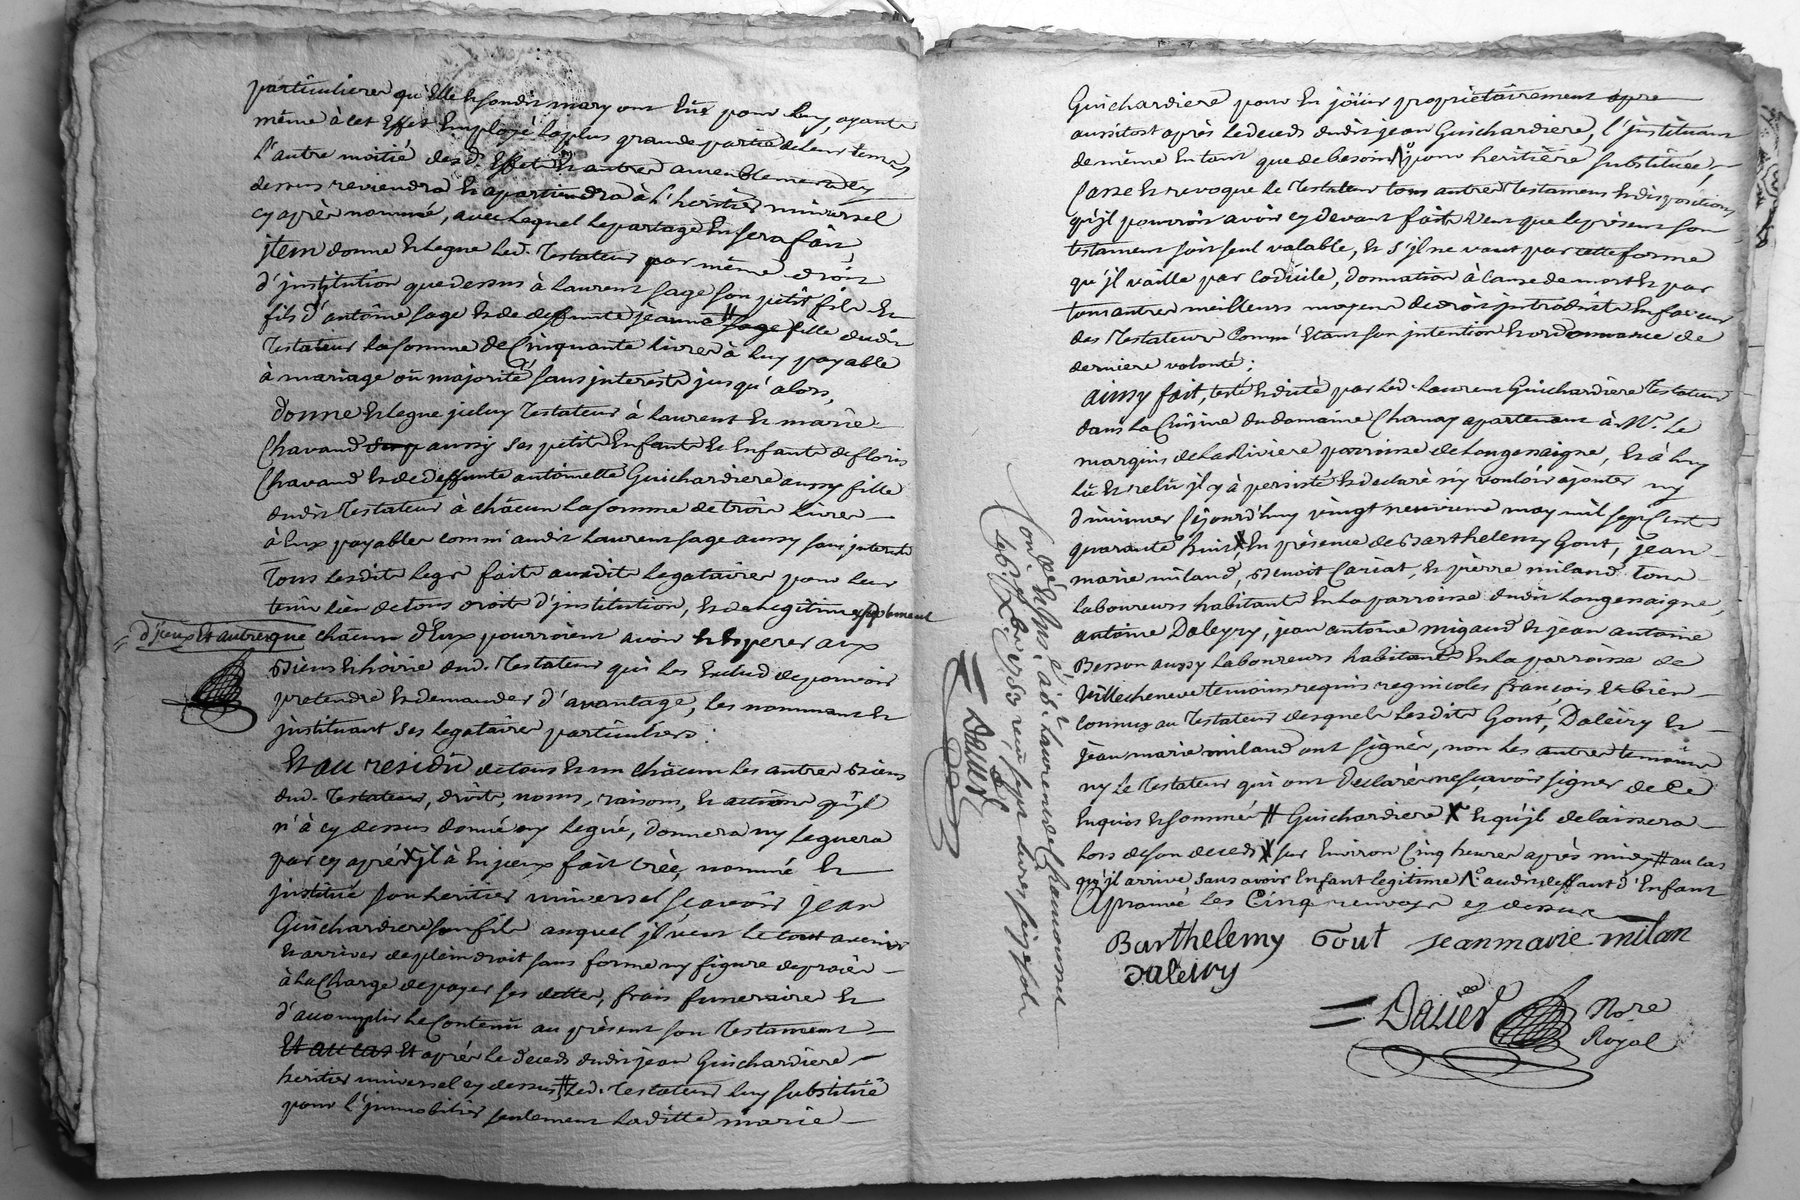 particulieres qu'elle et sondit mary ont eües pour luy, ayants
même à cet effet employé la plus grande partie de leur tems,
l'autre moitié desd. effets et autres ameublements cy
dessus reviendra et apartiendra à l'héritier universel
cy après nommé, avec lequel le partage en sera fait
jtem donne et legue led. Testateur par même droit
d'jnstitution que dessus à Laurent sage son petit fils et
fils d'antoine sage et de deffunte jeanne # sage fille dudit
Testateur la somme de Cinquante livres à luy payable
à mariage où majorité sans jnterests jusqu'alors,
donne et legue jceluy Testateur à Laurent et marie
Chavand aussy ses petits Enfants et Enfants de floris
Chavand et de deffunte antoinette Guichardiere aussy fille
dudit Testateur à châcun la somme de trois livres
à Eux payables comm'audit Laurent sage aussy sans jnterests
Tous lesdits legs faits ausdits legataires pour leur
tenir lieu de tous droits d'jnstitution, et de legitime, suplement
d'jceux et autres que châcun d'Eux pourroient avoir et Esperer aux
Biens et hoirie dud. Testateur qui les Exclud de pouvoir
pretendre et demander d'avantage, les nommant et
jnstituant ses legataires particuliers:
Et au residu de tous et un châcun les autres Biens
dud. Testateur, droits, noms, raisons, et actions qu'jl
n'à cy dessus donné ny legué, donnera ny leguera
par cy après jl à En jceux fait créé, nommé et
jnstitué son heritier universel sçavoir jean
Guichardiere son fils auquel jl veut le tout avenir
et arriver de plein droit sans forme ny figure de procès
à la Charge de payer ses dettes, frais funeraires et
d'accomplir le Contenu au présent son Testament
Et au cas Et après le deceds dudit jean Guichardiere
heritier universel cy dessus # led. Testateur luy substitüe
pour l'jmmobilier seulement laditte marie
Guichardiere pour En joüir proprietairement apre
aussitost après le deceds dudit jean Guichardiere, l'jnstituant
de même En tant que de besoin pour heritière substituée,
Casse et revoque le Testateur tous autres Testamens et dispositions
qu'jl pourroit avoir cy devant faits veut que le présent son
testament soit seul valable, et s'jl ne vaut par cette forme
qu'jl vaille par Codicile, donnation à Cause de mort et par
tous autres meilleurs moyens de droit jntroduits En faveur
des Testateurs Comm'Etant son jntention et ordonnance de
derniere volonté;
ainsy fait, testé et dicté par led. Laurent Guichardiere Testateur
dans la Cuisine du domaine Charnay apartenant à Mr. le
marquis de la Riviere parroisse de Longessaigne, et à luy
lü et relü jl y à persisté et declaré n'y vouloir ajouter ny
diminuer Cejourd'huy vingt neuvieme may mil sept Cent
quarante huit X En présence de Barthelemy Gout, jean
marie miland, Benoit Cariat, et pierre miland tous
laboureurs habitants En la parroisse dudit Longessaigne,
antoine Daleyry, jean antoine migaud et jean antoine
Besson aussy laboureurs habitants En la parroisse de
Villecheneve temoins requis regnicoles françois et bien
connus au Testateur desquels lesdits Gout, Daleiry et
jean marie miland ont signés, non les autres temoins
ny le Testateur qui ont declaré ne sçavoir signer de Ce
Enquis et sommés # Guichardiere X et qu'jl delaissera
lors de son deceds X sur Environ Cinq heures après midy # au cas
qu'jl arrive sans avoir Enfant legitime audit deffaut d'Enfant
Aprouvé les Cinq renvoys cy dessus
Barthelemy Gout jean marie milan
daleiry
= Dalier Nore
Royal
= Dalier